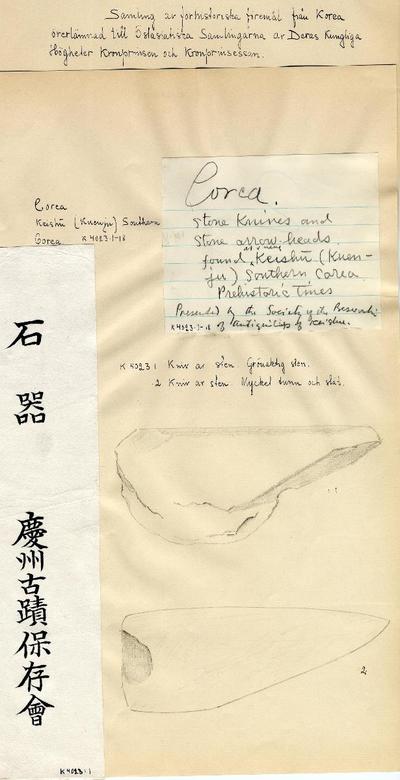 Samling av förhistoriska föremål från Korea
överlämnad till Östasiatiska Samlingarna av Deras Kungliga
Högheter Kronprinsen och Kronprinsessan.
Corea
Keishū (Kuenju) Southern
Corea K 4023:1-18
Corea.
Stone Knives and
Stone arrow heads
found Keishū (Kuen-
ju) Southern Corea
Prehistoric Times
Presented by the Society of the Research
K 4023:1-18 of Antiquities of Keishu.
石器
慶州古蹟保存會
K 4023:1
K 4023:1 Kniv av sten. Grönaktig sten.
2 Kniv av sten. Mycket tunn och slät.
2